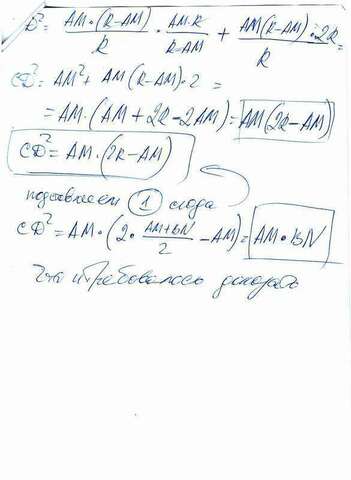 D² = AM·(R-AM)/R · AM·R/(R-AM) + AM(R-AM)·2R/R =
CD² = AM² + AM(R-AM)·2 =
= AM·(AM+2R-2AM) = AM(2R-AM)
CD² = AM·(2R-AM)
подставляем 1 сюда
CD² = AM·(2·(AM+BN)/2 - AM) = AM·BN
Что и требовалось доказать